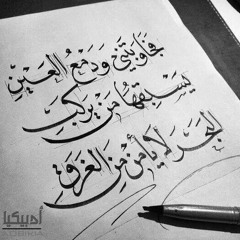 فجاوبتني ودمع العين
يسبقها من يركب
البحر لا يأمن من الغرق
أمبيكيا